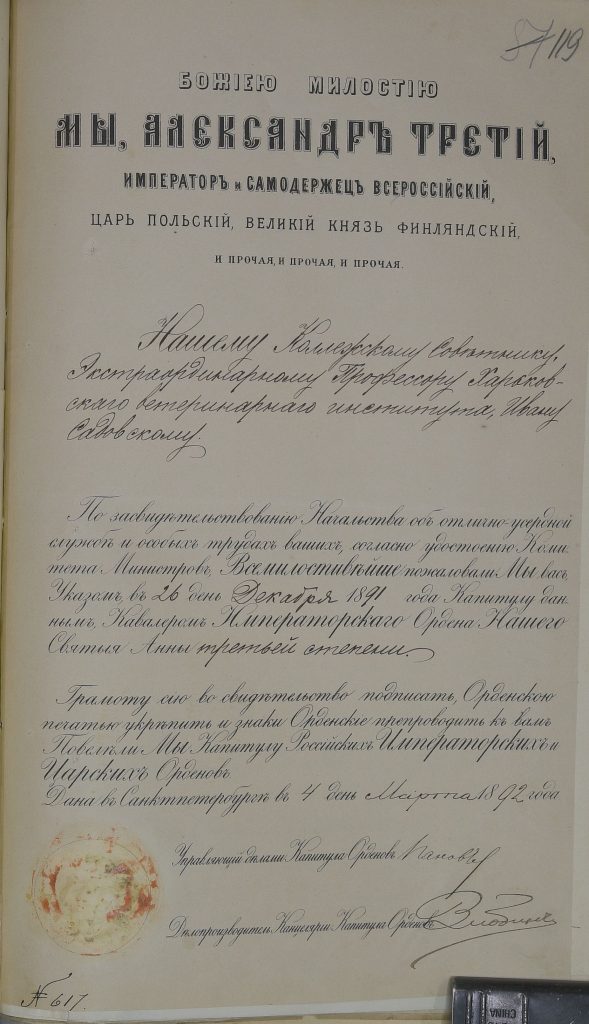 119
БОЖІЕЮ МИЛОСТІЮ
МЫ, АЛЕКСАНДРЪ ТРЕТІЙ,
ИМПЕРАТОРЪ и САМОДЕРЖЕЦЪ ВСЕРОССІЙСКІЙ,
ЦАРЬ ПОЛЬСКІЙ, ВЕЛИКІЙ КНЯЗЬ ФИНЛЯНДСКІЙ,
И ПРОЧАЯ, И ПРОЧАЯ, И ПРОЧАЯ.
Нашему Коллежскому Совѣтнику,
Экстраординарному Профессору Харьков-
скаго ветеринарнаго института, Ивану
Садовскому.
По засвидѣтельствованію Начальства объ отлично-усердной
службѣ и особыхъ трудахъ вашихъ, согласно удостоенію Коми-
тета Министровъ, Всемилостивѣйше пожаловали Мы васъ,
Указомъ, въ 26 день Декабря 1891 года Капитулу дан-
нымъ, Кавалеромъ Императорскаго Ордена Нашего
Святыя Анны третьей степени.
Грамоту сію во свидѣтельство подписать, Орденскою
печатью укрѣпить и знаки Орденскіе препроводить къ вамъ
Повелѣли Мы Капитулу Россійскихъ Императорскихъ и
Царскихъ Орденовъ.
Дана въ Санктпетербургѣ въ 4 день Марта 1892 года
Управляющій дѣлами Капитула Орденовъ Пановъ
Дѣлопроизводитель Канцеляріи Капитула Орденовъ
№ 617.
CHINA